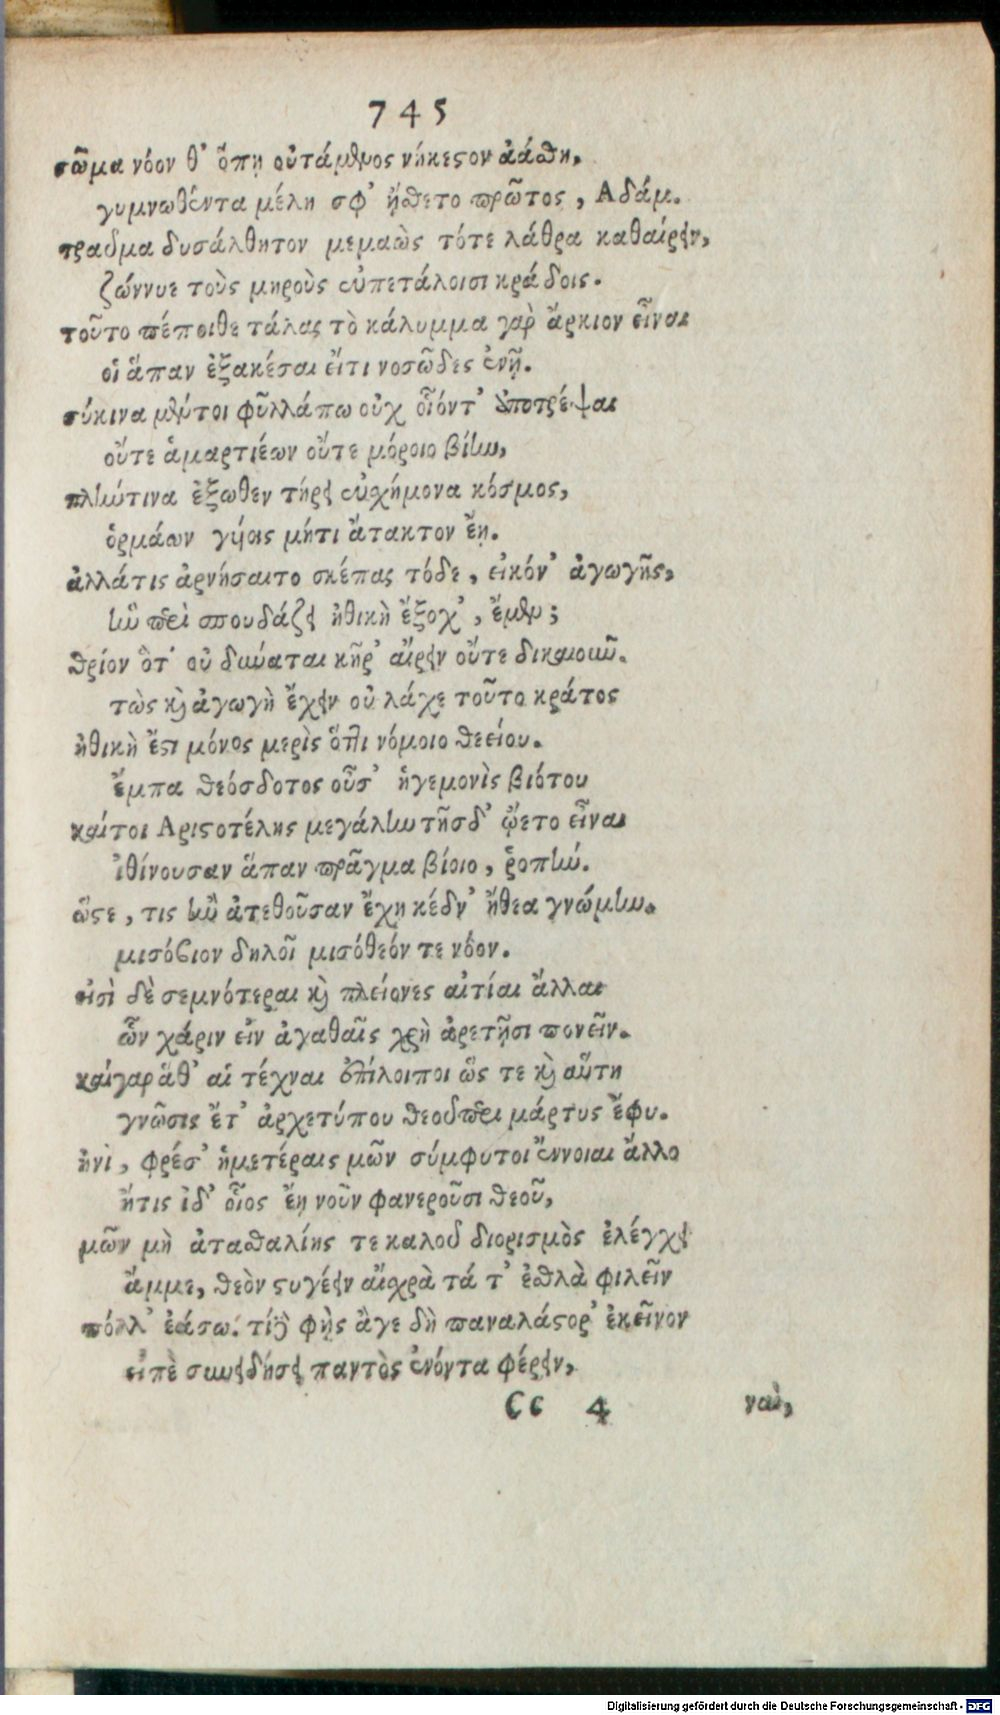 745
σῶμα νόον θ' ὅπῃ οὐτάμενος νήκεστον ἀάσθη,
γυμνωθέντα μέλη σφ' ᾔσθετο πρῶτος, Αδάμ.
τραῦμα δυσάλθητον μεμαὼς τότε λάθρα καθαίρειν,
ζώννυε τοὺς μηροὺς εὐπετάλοισι κράδοις.
τοῦτο πέποιθε τάλας τὸ κάλυμμα γὰρ ἄρκιον εἶναι
οἱ ἅπαν ἐξακέσαι εἴτι νοσῶδες ἐνῇ.
σύκινα μέντοι φῦλλάπω οὐχ οἷόντ' ἀποτρέψαι
οὔτε ἁμαρτιέων οὔτε μόροιο βίην,
πλήντινα ἔξωθεν τήρει εὐσχήμονα κόσμος,
ὁρμάων γυίοις μήτι ἄτακτον ἔῃ.
ἀλλάτις ἀρνήσαιτο σκέπας τόδε, εἰκόν' ἀγωγῆς,
ἣν περὶ σπουδάζει ἠθικὴ ἔξοχ', ἔμεν;
θρίον ὅτ' οὐ δύναται κῆρ' αἴρειν οὔτε δικαιοῦν.
τὼς καὶ ἀγωγὴ ἔχειν οὐ λάχε τοῦτο κράτος
ἠθικὴ ἔστι μόνος μερὶς ὅττι νόμοιο θεείου.
ἔμπα θεόσδοτος οὖσ' ἡγεμονὶς βιότου
καίτοι Αριστοτέλης μεγάλην τῆσδ' ᾤετο εἶναι
ἰθίνουσαν ἅπαν πρᾶγμα βίοιο, ῥοπήν.
ὥστε, τις ἢν ἀτεθοῦσαν ἔχῃ κέδν' ἤθεα γνώμην.
μισόβιον δηλοῖ μισόθεόν τε νόον.
εἰσὶ δὲ σεμνότεραι καὶ πλείονες αἰτίαι ἄλλαι
ὧν χάριν εἰν ἀγαθαῖς χρὴ ἀρετῇσι πονεῖν.
καίγαρ ἅθ' αἱ τέχναι ἐπίλοιποι ὥς τε καὶ αὕτη
γνῶσις ἔτ' ἀρχετύπου θεοῦ περι μάρτυς ἔφυ.
ἠνὶ, φρέσ' ἡμετέραις μῶν σύμφυτοι ἔννοιαι ἄλλο
ἤτις ἰδ' οἷος ἔῃ νοῦν φανεροῦσι θεοῦ,
μῶν μὴ ἀτασθαλίης τε καλοῦ διορισμὸς ἐλέγχει
ἄμμε, θεὸν στυγέειν αἰσχρὰ τά τ' ἐσθλὰ φιλεῖν
πόλλ' ἐάσω. τί φῂς ἄγε δὴ παναλάστορ' ἐκεῖνον
εἰπὲ συνειδήσει παντὸς ἐνόντα φέρειν,
Cc 4 ναὶ,
Digitalisierung gefördert durch die Deutsche Forschungsgemeinschaft - DFG